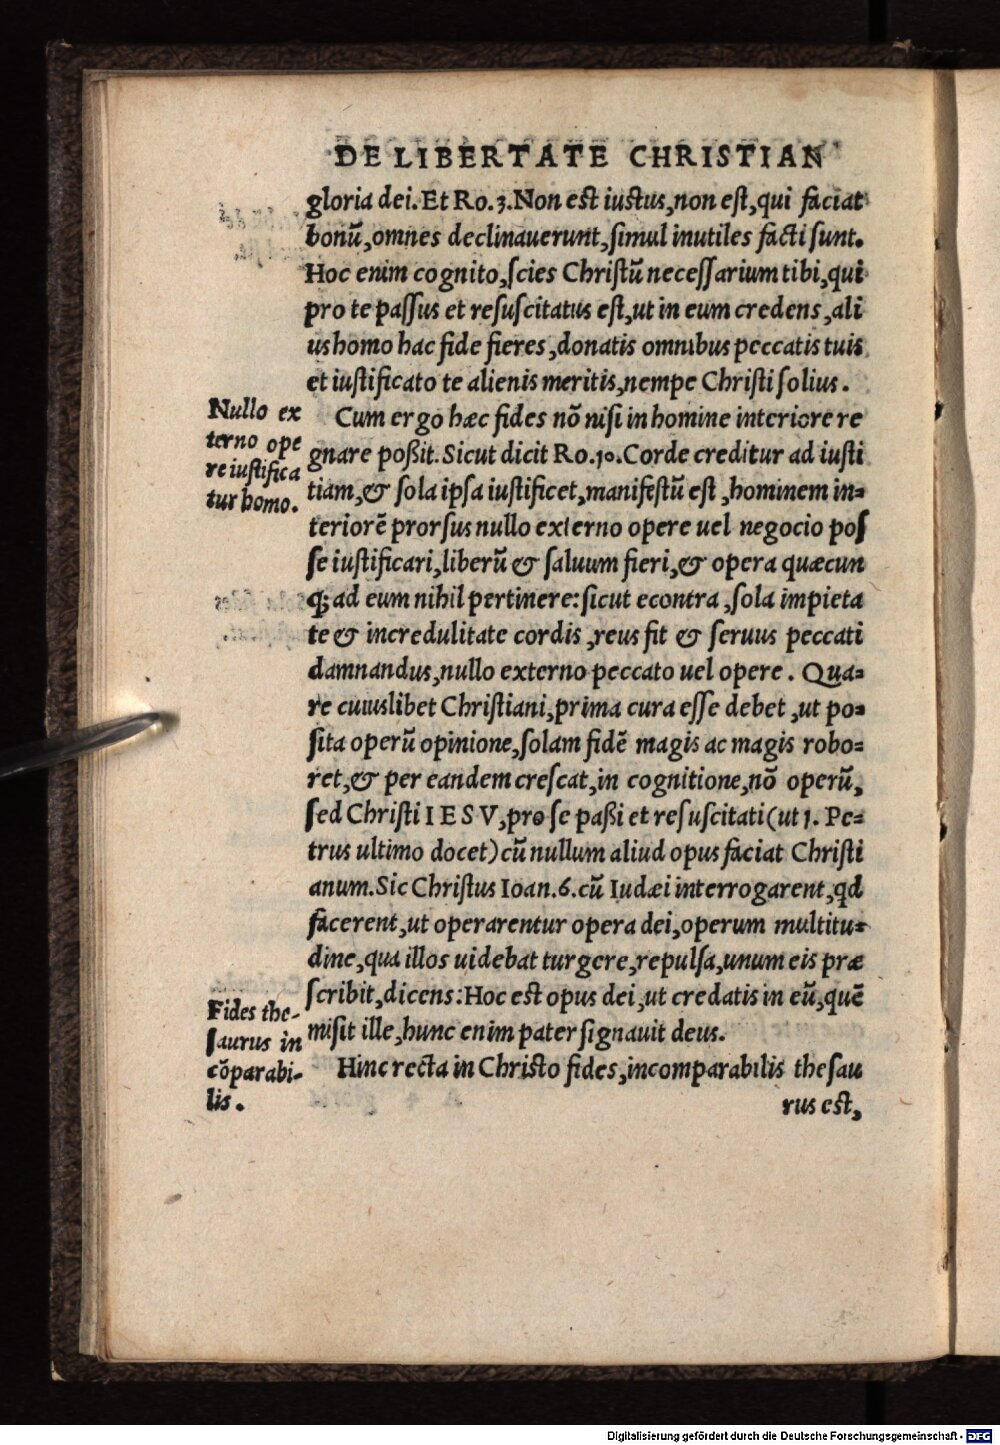 DE LIBERTATE CHRISTIAN
gloria dei. Et Ro. 3. Non est iustus, non est, qui faciat
bonũ, omnes declinauerunt, simul inutiles facti sunt.
Hoc enim cognito, scies Christũ necessarium tibi, qui
pro te passus et resuscitatus est, ut in eum credens, ali
us homo hac fide fieres, donatis omnibus peccatis tuis
et iustificato te alienis meritis, nempe Christi solius.
Nullo ex
terno ope
re iustifica
tur homo.
Cum ergo hæc fides nõ nisi in homine interiore re
gnare poßit. Sicut dicit Ro. 10. Corde creditur ad iusti
tiam, & sola ipsa iustificet, manifestũ est, hominem in=
teriorẽ prorsus nullo externo opere uel negocio pos
se iustificari, liberũ & saluum fieri, & opera quæcun
q; ad eum nihil pertinere: sicut econtra, sola impieta
te & incredulitate cordis, reus fit & seruus peccati
damnandus, nullo externo peccato uel opere. Qua=
re cuiuslibet Christiani, prima cura esse debet, ut po=
sita operũ opinione, solam fidẽ magis ac magis robo=
ret, & per eandem crescat, in cognitione, nõ operũ,
sed Christi IESV, pro se paßi et resuscitati (ut 1. Pe=
trus ultimo docet) cũ nullum aliud opus faciat Christi
anum. Sic Christus Ioan. 6. cũ Iudæi interrogarent, qd
facerent, ut operarentur opera dei, operum multitu=
dine, qua illos uidebat turgere, repulsa, unum eis præ
scribit, dicens: Hoc est opus dei, ut credatis in eũ, quẽ
misit ille, hunc enim pater signauit deus.
Fides the-
saurus in
cõparabi-
lis.
Hinc recta in Christo fides, incomparabilis thesau
rus est,
Digitalisierung gefördert durch die Deutsche Forschungsgemeinschaft - DFG